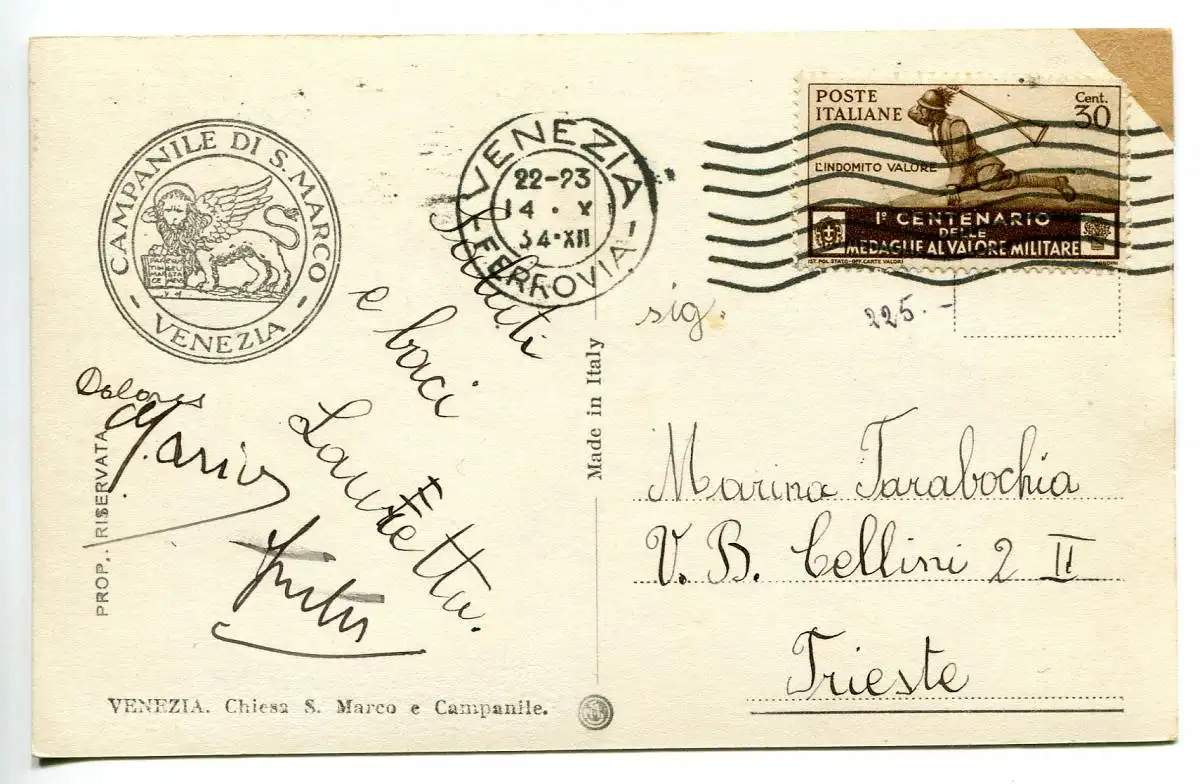 CAMPANILE DI S. MARCO
- VENEZIA -
VENEZIA
22-23
14 · X
34·XII
FERROVIA
POSTE
ITALIANE
Cent.
30
L'INDOMITO VALORE
Iº CENTENARIO
DELLE
MEDAGLIE AL VALORE MILITARE
IST. POL. STATO-OFF. CARTE VALORI
Saluti
e baci
Lauretta.
Dolores
PROP. RISERVATA
Made in Italy
sig.
225.-
Marina Tarabochia
V. B. Cellini 2 II
Trieste
VENEZIA. Chiesa S. Marco e Campanile.